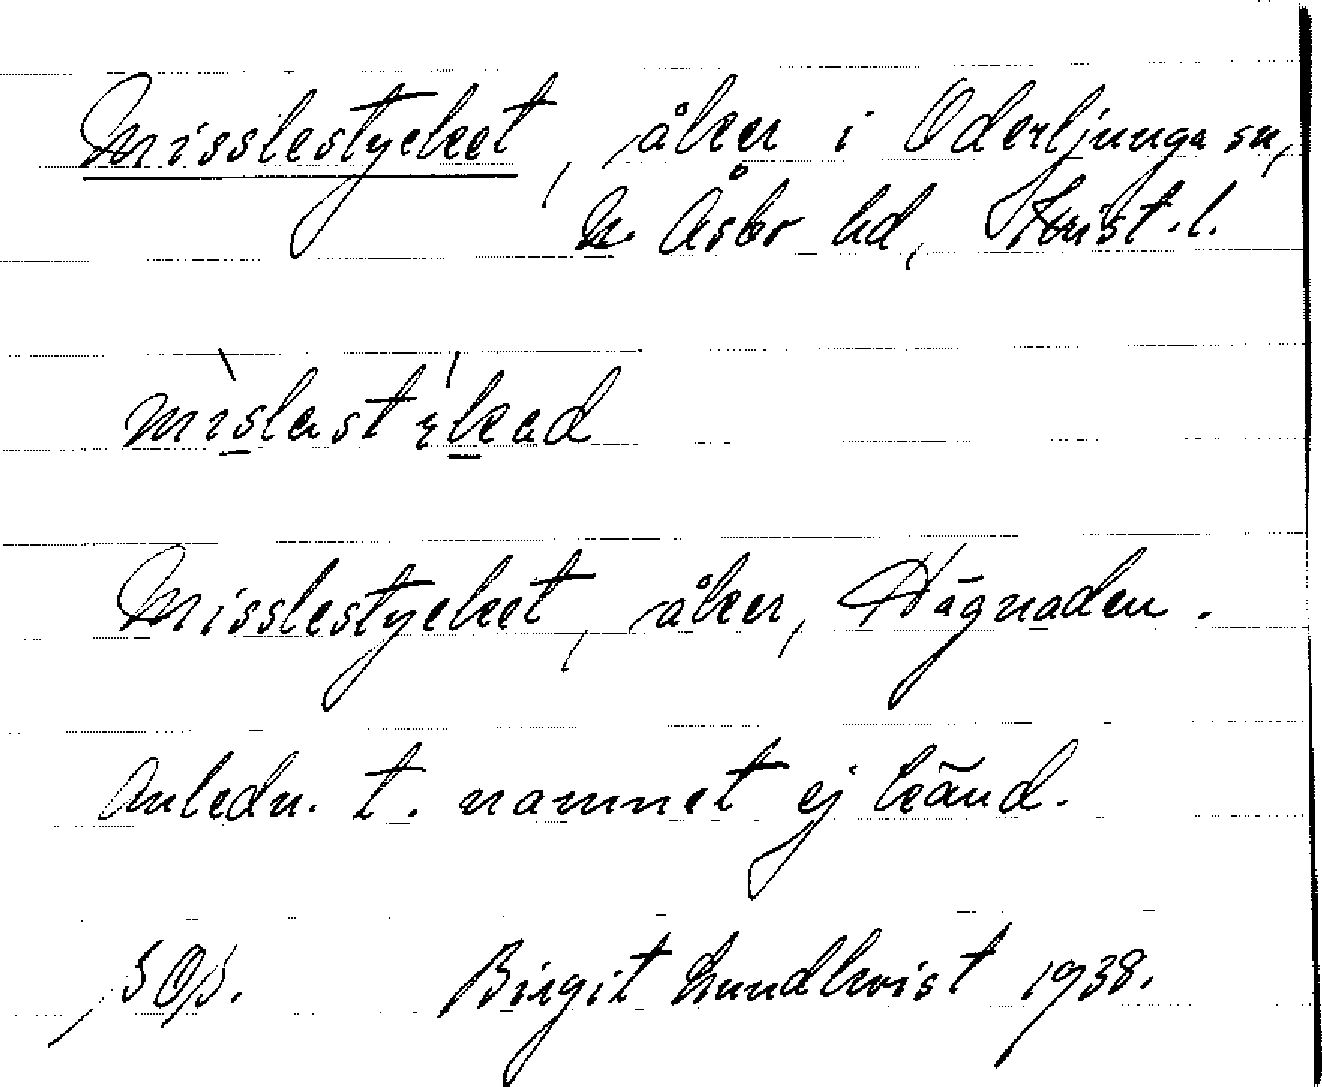 Misslestycket, åker i Oderljunga sn,
N. Åsbo hd, Krist. l.
Misslestycket, åker, Hägnaden.
Anledn. t. namnet ej känd.
Birgit Lundkvist 1938.